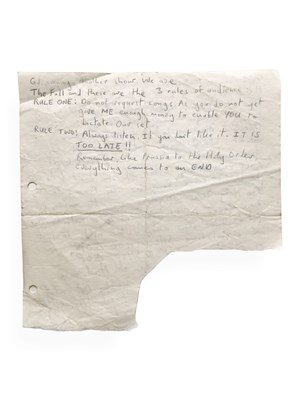 show. We are
The Fall and these are the 3 rules of audience
RULE ONE: Do not request songs. As you do not yet
give ME enough money to enable YOU to
dictate Our set.
RULE TWO: Always listen. If you don't like it. IT IS
TOO LATE!!
Remember, like to the Holy Order
Everything comes to an END